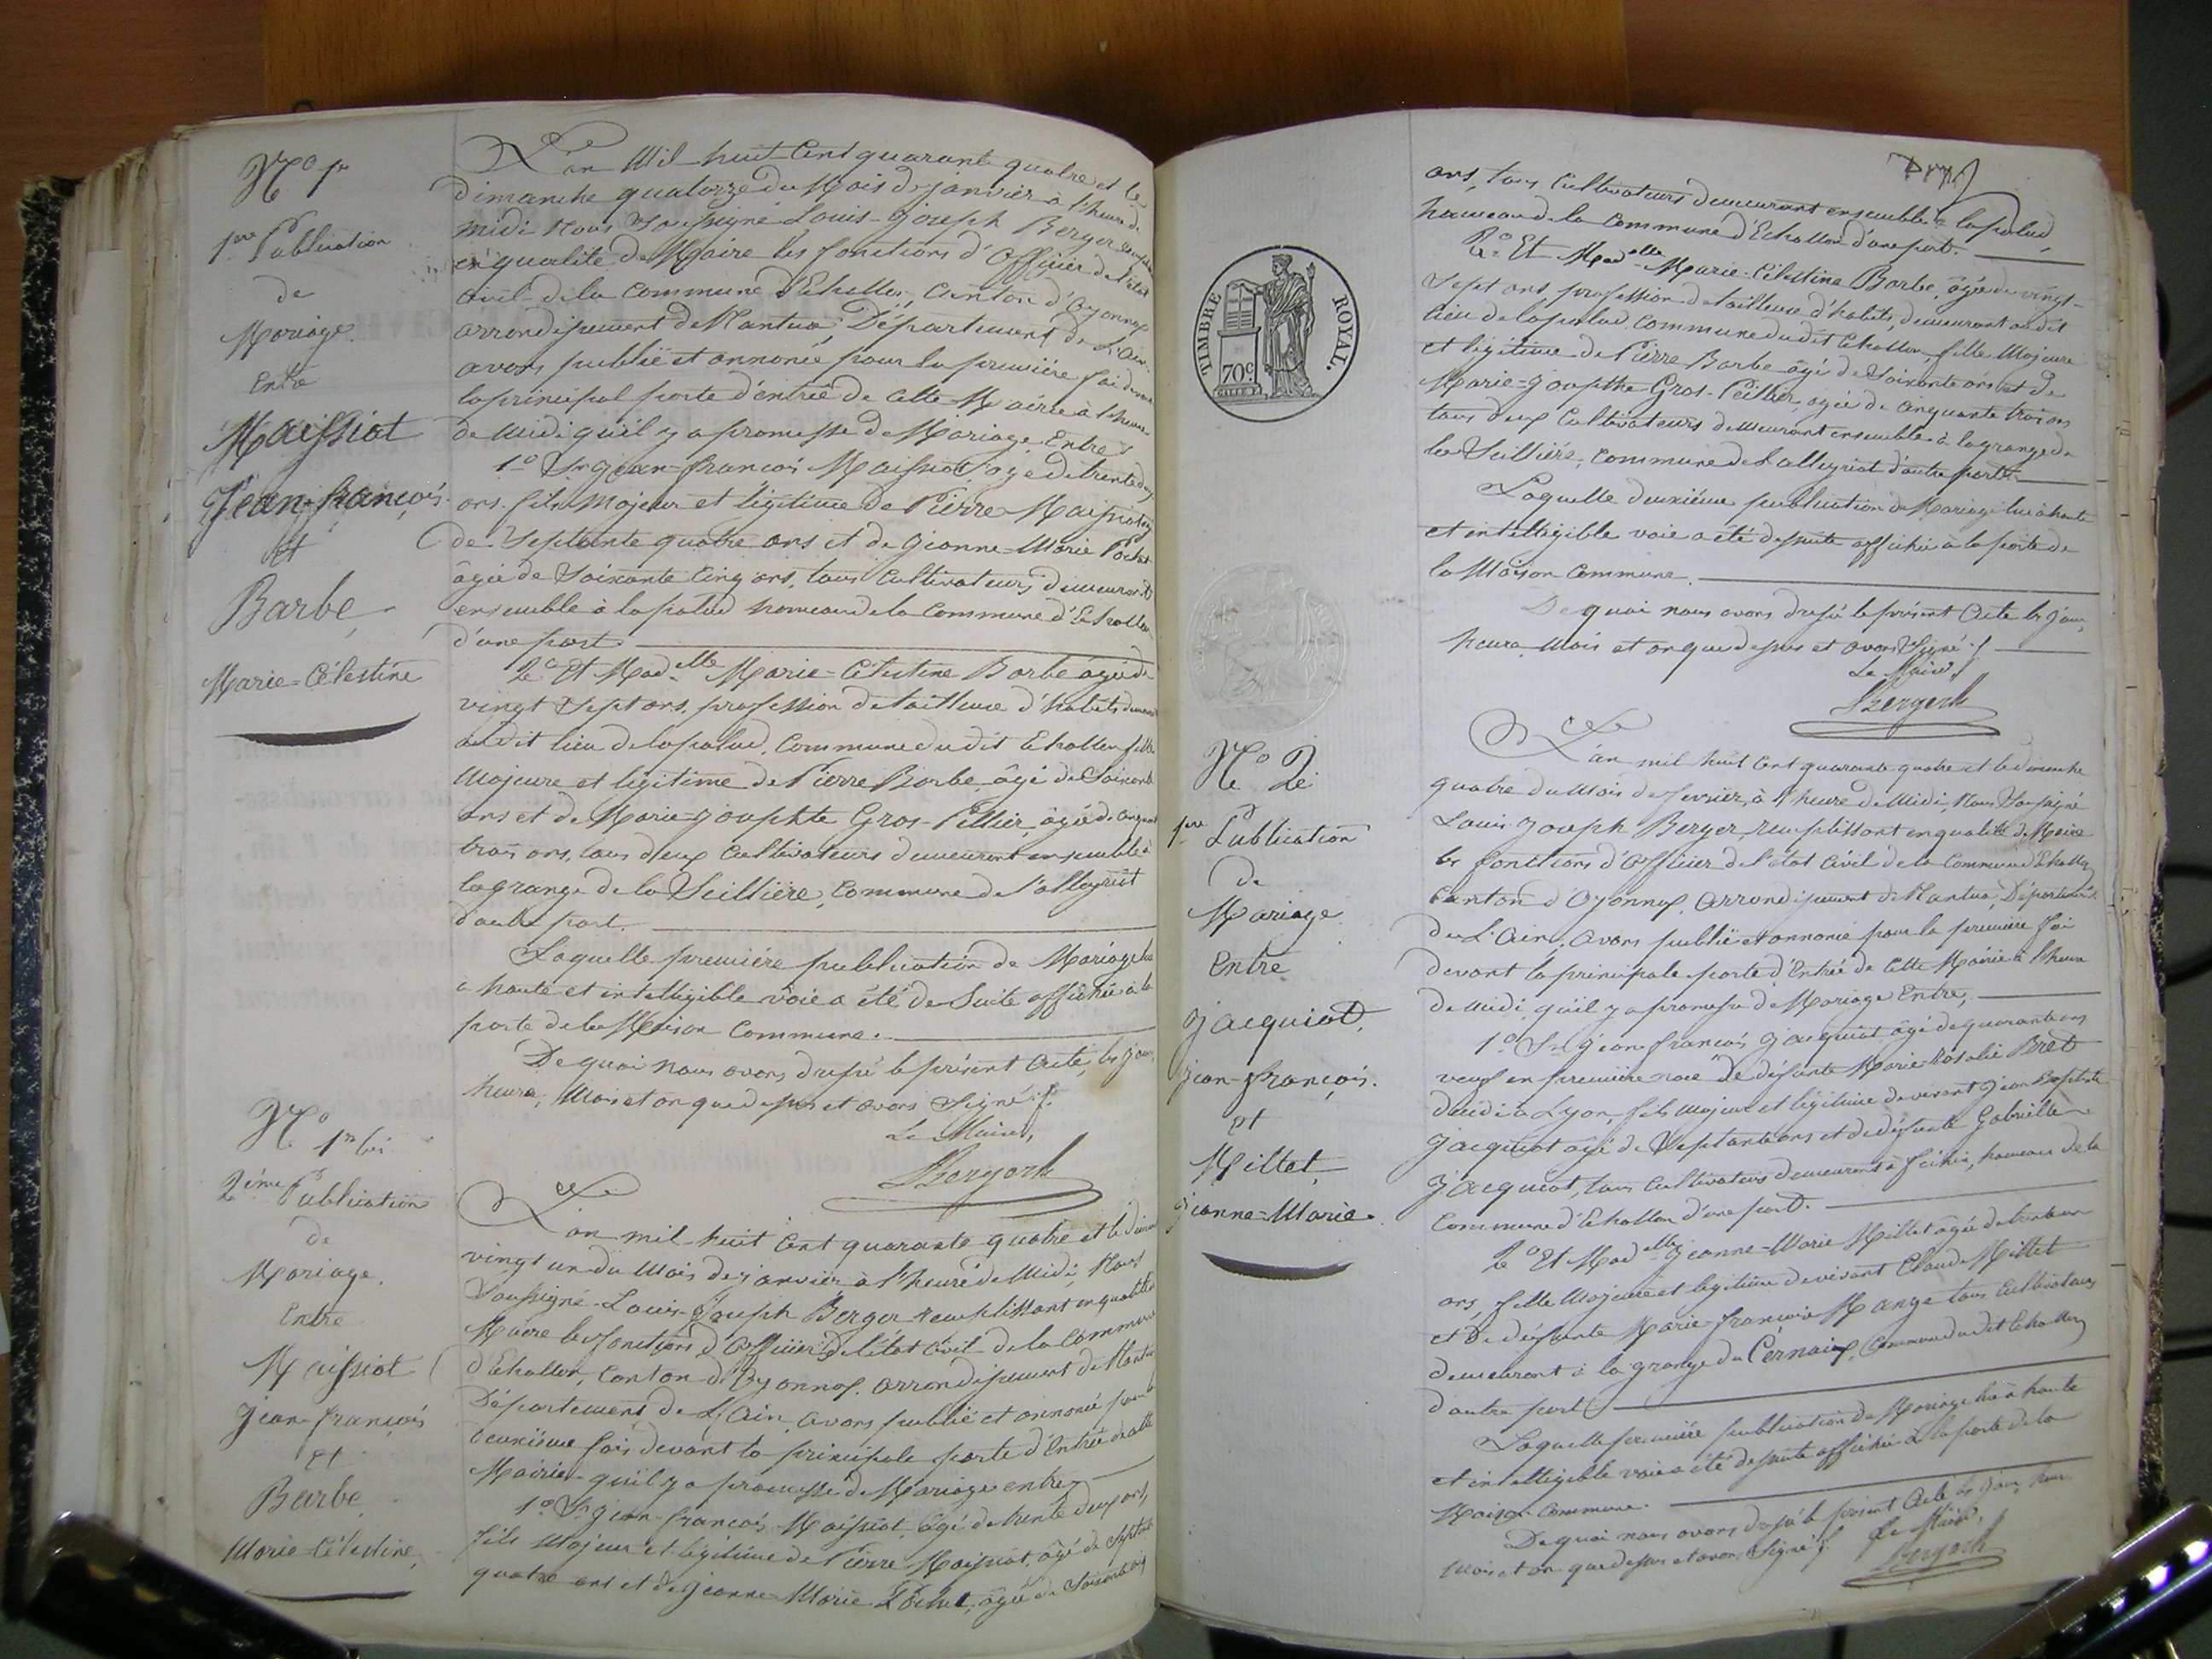 N.o 1er
1ere Publication
de
Mariage
Entre
Maissiat
Jean-françois
et
Barbe
Marie-Célestine
L'an Mil huit Cent quarante quatre et le
dimanche quatorze du Mois de janvier à l'heure de
midi Nous Soussigné Louis-Joseph Berger
en qualité de Maire les fonctions d'Officier de l'état
Civil de la Commune d'Echallon, Canton d'Oyonnax
arrondissement de Nantua, Département de L'Ain
avons publié et annoncé pour la première fois devant
la principal porte d'entrée de Cette Mairie à l'heure
de Midi qu'il y a promesse de Mariage Entre
1.o Sr Jean-françois Maissiat, agé de trente deux
ans, fils Majeur et légitime de Pierre Maissiat
de Septante quatre ans et de Jeanne-Marie Pochet
âgée de Soixante Cinq ans, tous Cultivateurs demeurant
ensemble à lapalud hameau de la Commune d'Echallon
d'une part
2.o Et Madelle Marie-Célestine Barbe âgée de
vingt Sept ans, profession de tailleuse d'habits
audit lieu de lapalud, Commune du dit Echallon fille
Majeure et légitime de Pierre Barbe âgé de Soixante
ans et de Marie-Josephte Gros-Pellier, âgée de Cinquante
trois ans, tous deux Cultivateurs demeurant ensemble à
la grange de la Seillière, Commune de Lalleyriat
d'autre part.
Laquelle première publication de Mariage lue
a haute et intelligible voie a été de Suite affichée à la
porte de la Maison Commune.
De quoi nous avons dressé le présent acte, les jour,
heure, Mois et an que dessus et avons Signé
Le Maire,
N.o 1er bis
2ème Publication
de
Mariage.
Entre
Maissiat
Jean-françois
Et
Barbe
Marie-Célestine,
L'an mil-huit Cent quarante quatre et le
vingt un du Mois de janvier à l'heure de Midi, Nous
Soussigné Louis-Joseph Berger remplissant en qualité de
Maire les fonctions d'Officier de l'état Civil de la Commune
d'Echallon, Canton d'Oyonnax, arrondissement de Nantua
Département de L'Ain, avons publié et annoncé pour la
deuxième fois devant la principale porte d'Entrée de cette
Mairie qu'il y a promesse de Mariage entre
1.o Sr Jean-françois Maissiat, âgé de trente deux ans,
fils Majeur et légitime de Pierre Maissiat, âgé de Septante
quatre ans et de Jeanne-Marie Pochet, âgée de Soixante Cinq
ans, tous Cultivateurs demeurant ensemble à lapalud,
hameau de la Commune d'Echallon d'une part.
2.o Et Madelle Marie-Célestine Barbe, âgée de vingt-
Sept ans, profession de tailleuse d'habits, demeurant audit
lieu de lapalud Commune du dit Echallon, fille Majeure
et légitime de Pierre Barbe âgé de Soixante ans et de
Marie-Josephte Gros-Pellier, agée de Cinquante trois ans
tous deux Cultivateurs demeurant ensemble à la grange de
la Seillière, Commune de Lalleyriat d'autre part.
Laquelle deuxième publication de Mariage lue à haute
et intelligible voie a été de suite affichée à la porte de
la Maison Commune.
De quoi nous avons dressé le présent Acte les jour,
heure, Mois et an que dessus et avons Signé
Le Maire,
TIMBRE ROYAL.
70c
N.o 2
1ere Publication
de
Mariage.
Entre
Jacquiot,
Jean-François.
et
Millet,
Jeanne-Marie.
L'an mil huit Cent quarante quatre et le dimanche
quatre du Mois de fevrier, à l'heure de Midi, Nous Soussigné
Louis Joseph Berger, remplissant en qualité de Maire
les fonctions d'Officier de l'état Civil de la Commune d'Echallon
Canton d'Oyonnax, arrondissement de Nantua, Département
de L'Ain, avons publié et annoncé pour la première fois
devant la principale porte d'Entrée de Cette Mairie à l'heure
de Midi, qu'il y a promesse de Mariage Entre,
1.o Sr Jean françois Jacquiot, âgé de quarante ans
veuf en première noce de défunte Marie-Rosalie Bret
décédée à Lyon, fils Majeur et légitime de vivant Jean Baptiste
Jacquiot agé de Septante ans et de défunte Gabrielle
Jacquiot, tous Cultivateurs demeurants à hameau de la
Commune d'Echallon d'une part.
2.o Et Madelle Jeanne-Marie Millet âgée de
ans, fille Majeure et légitime de vivant Claude Millet
et de défunte Marie-françoise Mange tous Cultivateurs
demeurant à la grange du Commune dudit Echallon
d'autre part
Laquelle première publication de Mariage lue à haute
et intelligible voie a été de suite affichée à la porte de la
Maison Commune.
De quoi nous avons dressé le présent Acte les jour, heure
Mois et an que dessus et avons Signé
Le Maire,